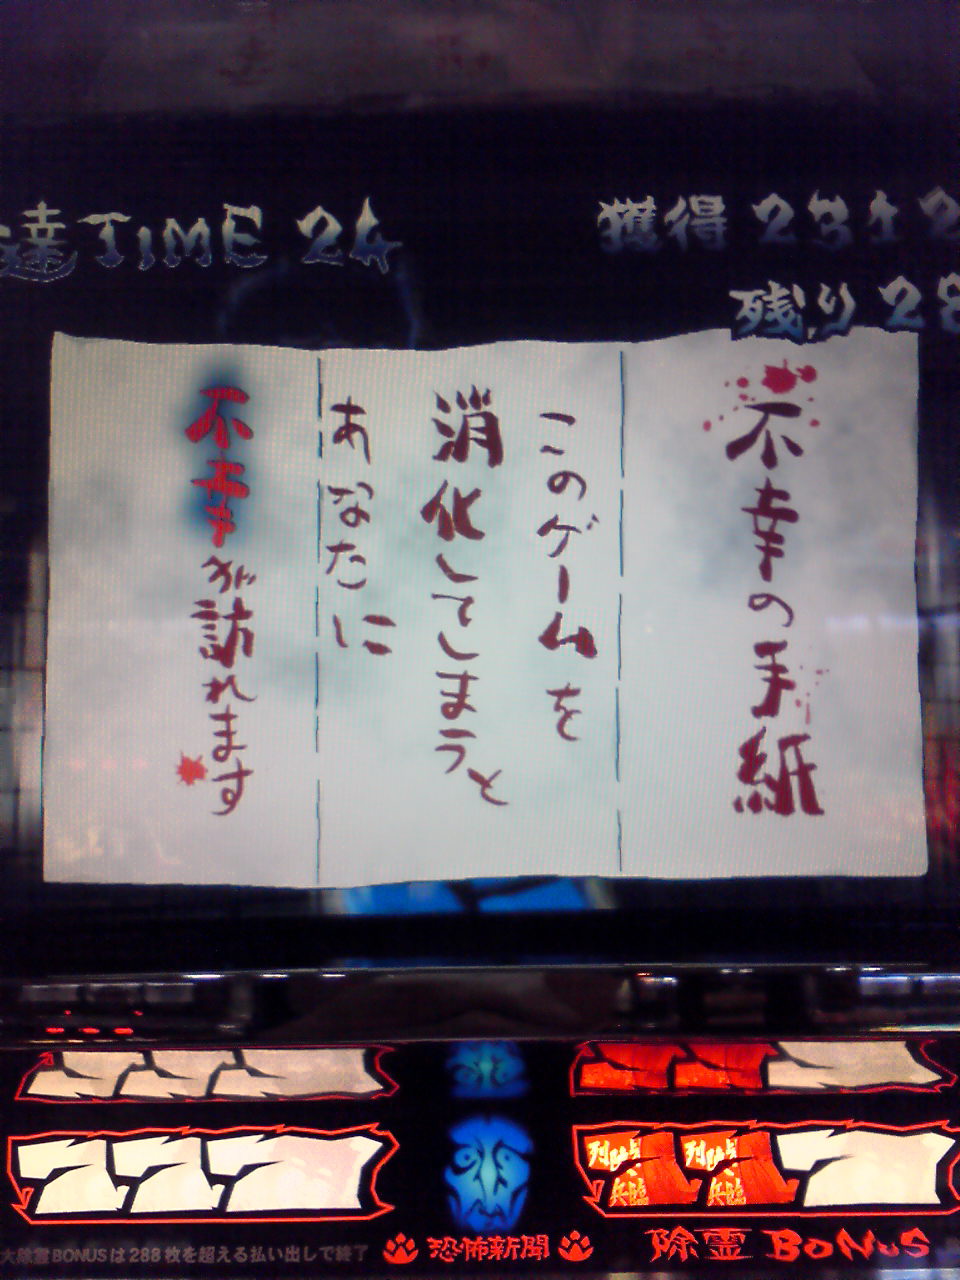 達TIME 24
獲得 2312
残り 28
不幸の手紙
このゲームを
消化してしまうと
あなたに
不幸が訪れます
777
7
列 兵臨
列 兵臨
7
大除霊BONUSは288枚を超える払い出しで終了
恐怖新聞
除霊 BONUS